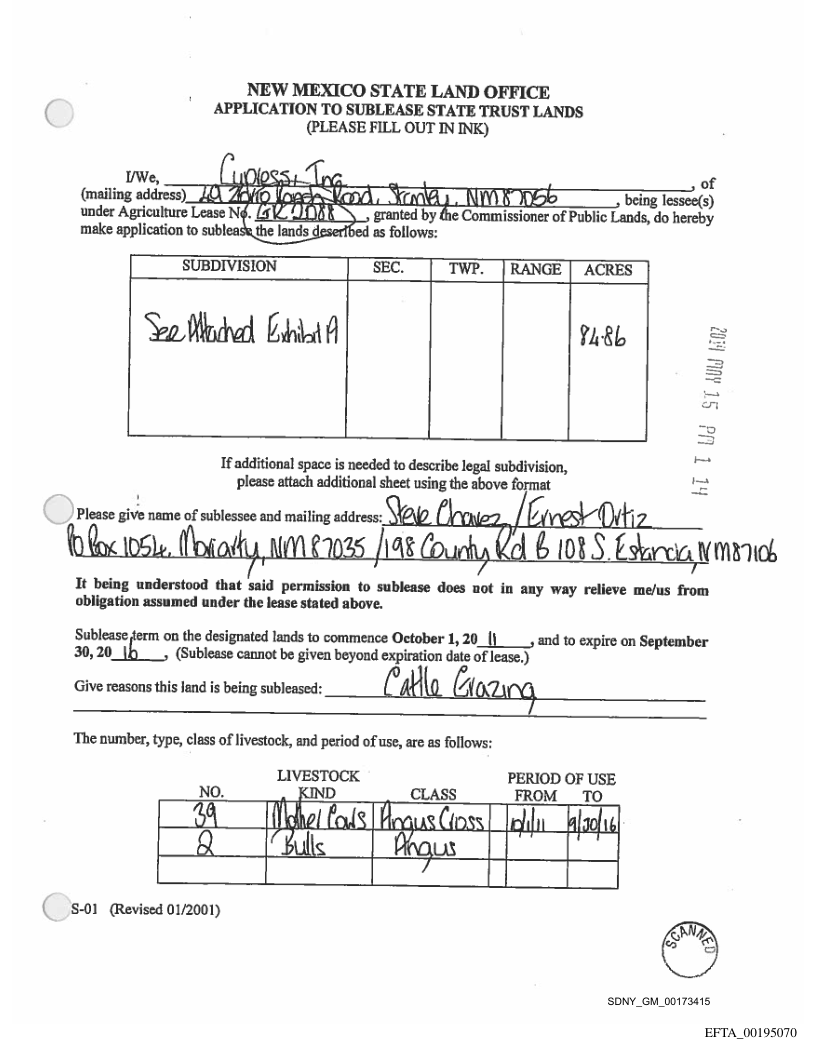 NEW MEXICO STATE LAND OFFICE
APPLICATION TO SUBLEASE STATE TRUST LANDS
(PLEASE FILL OUT IN INK)
I/We, Cypress, Inc , of
(mailing address) 49 Zorro Ranch Road, Stanley, NM 87056 , being lessee(s)
under Agriculture Lease No. GR 2088 , granted by the Commissioner of Public Lands, do hereby
make application to sublease the lands described as follows:
SUBDIVISION SEC. TWP. RANGE ACRES
See Attached Exhibit A 84.86
2014 MAY 15 PM 1 14
If additional space is needed to describe legal subdivision,
please attach additional sheet using the above format
Please give name of sublessee and mailing address: Steve Chavez / Ernest Ortiz
PO Box 1054, Moriarty, NM 87035 / 198 County Rd B 108 S. Estancia, NM 87106
It being understood that said permission to sublease does not in any way relieve me/us from
obligation assumed under the lease stated above.
Sublease term on the designated lands to commence October 1, 20 11 , and to expire on September
30, 20 16 , (Sublease cannot be given beyond expiration date of lease.)
Give reasons this land is being subleased: Cattle Grazing
The number, type, class of livestock, and period of use, are as follows:
LIVESTOCK PERIOD OF USE
NO. KIND CLASS FROM TO
39 Mother Cows Angus Cross 10/1/11 9/30/16
2 Bulls Angus
S-01 (Revised 01/2001)
SCANNED
SDNY_GM_00173415
EFTA_00195070